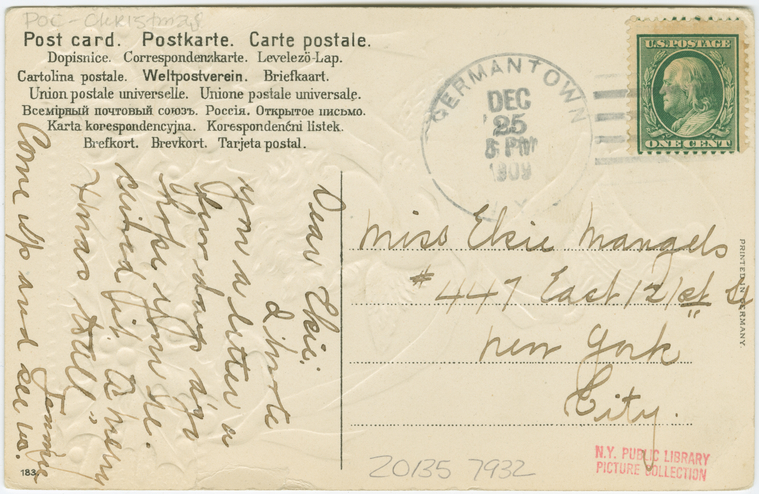 POC - Christmas
Post card. Postkarte. Carte postale.
Dopisnice. Correspondenzkarte. Levelező-Lap.
Cartolina postale. Weltpostverein. Briefkaart.
Union postale universelle. Unione postale universale.
Всемірный почтовый союзъ. Россія. Открытое письмо.
Karta korespondencyjna. Korespondenční lístek.
Brefkort. Brevkort. Tarjeta postal.
GERMANTOWN
DEC
25
5 PM
1909
U.S. POSTAGE
ONE CENT
Dear Elsie:
I wrote
you a letter a
few days ago
hope you re-
ceived it. A merry
Xmas to all,
Jennie
Come up and see us.
Miss Elsie Mangels
#447 East 121st St
New York
City.
PRINTED IN GERMANY.
183
20135 7932
N.Y. PUBLIC LIBRARY
PICTURE COLLECTION